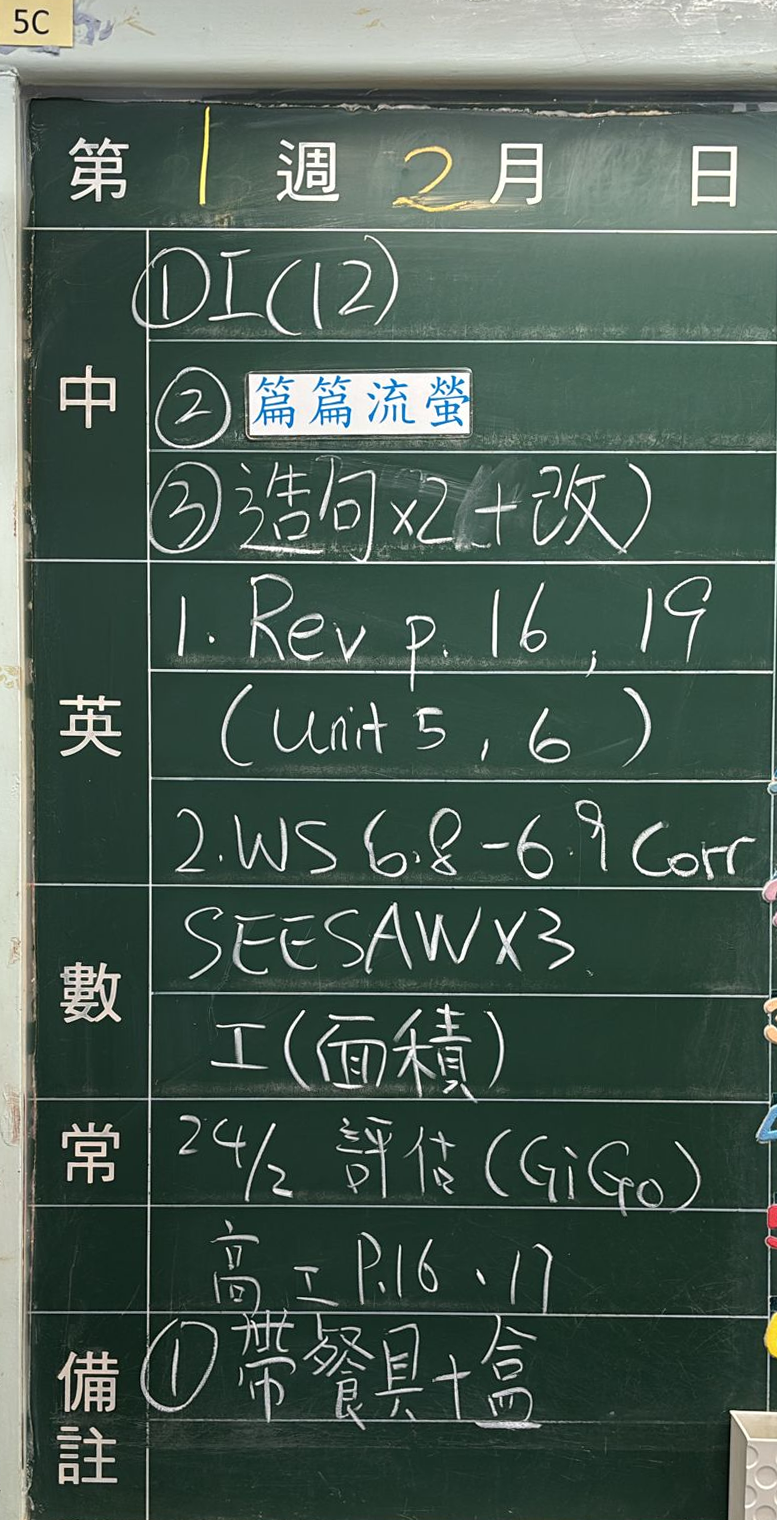 5C
第 1 週 2 月 日
中
①工(12)
② 篇篇流螢
③造句x2+改)
英
1. Rev p. 16, 19
(Unit 5, 6)
2. WS 6.8-6.9 Corr
數
SEESAW X3
工(面積)
常
24/2 評估(GiGo)
高工 P.16、17
備註
① 帶餐具+盒